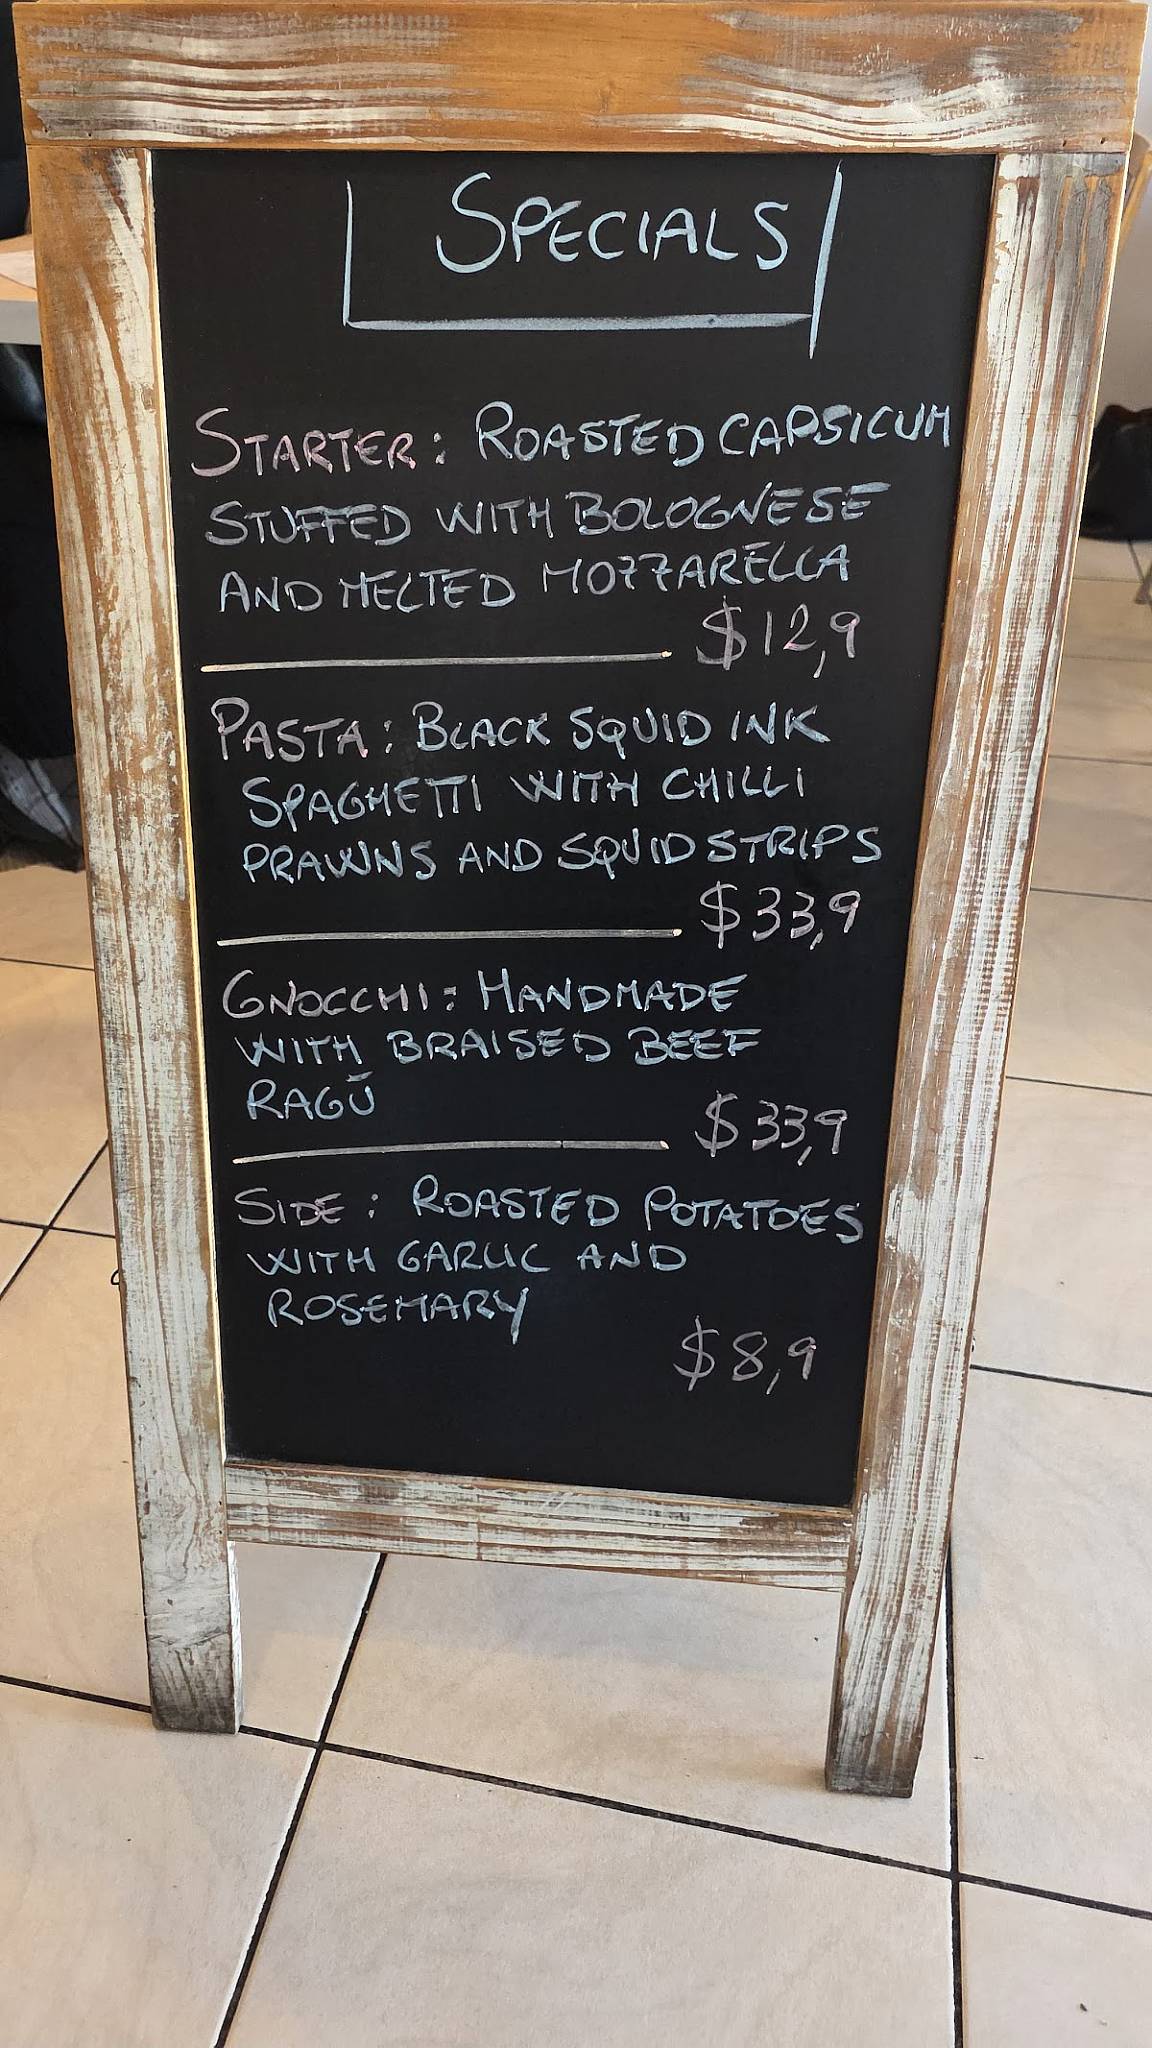 SPECIALS
STARTER: ROASTED CAPSICUM
STUFFED WITH BOLOGNESE
AND MELTED MOZZARELLA
$12,9
PASTA: BLACK SQUID INK
SPAGHETTI WITH CHILLI
PRAWNS AND SQUID STRIPS
$33,9
GNOCCHI: HANDMADE
WITH BRAISED BEEF
RAGŪ
$33,9
SIDE: ROASTED POTATOES
WITH GARLIC AND
ROSEMARY
$8,9